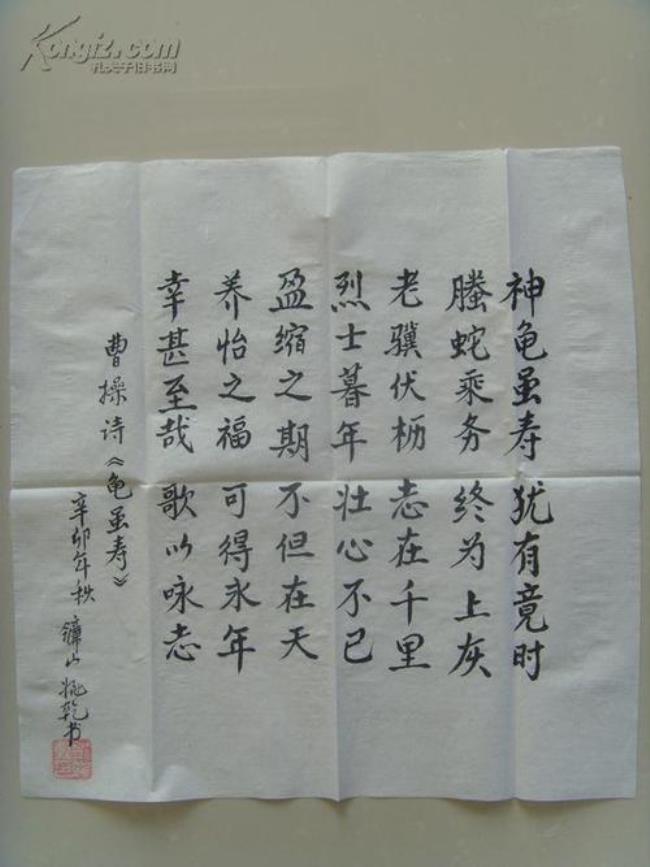 Kongfz.com
孔夫子旧书网
神龟虽寿 犹有竟时
螣蛇乘务 终为上灰
老骥伏枥 志在千里
烈士暮年 壮心不已
盈缩之期 不但在天
养怡之福 可得永年
幸甚至哉 歌以咏志
曹操诗《龟虽寿》
辛卯年秋 山 乾书